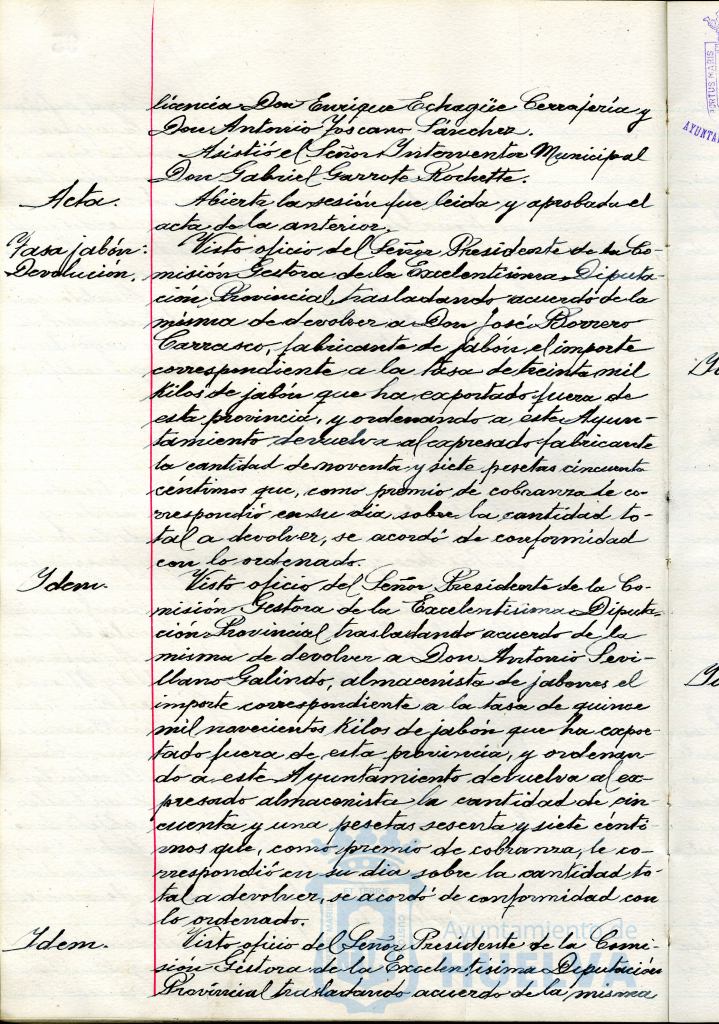 licencia Don Enrique Echagüe Cerrajería y
Don Antonio Toscano Sánchez.
Asistió el Señor Interventor Municipal
Don Gabriel Garrote Rochette.
Acta.
Abierta la sesión fue leida y aprobada el
acta de la anterior.
Tasa jabón:
Devolución.
Visto oficio del Señor Presidente de la Co-
misión Gestora de la Excelentisima Diputa-
ción Provincial, trasladando acuerdo de la
misma de devolver a Don José Borrero
Carrasco, fabricante de jabón, el importe
correspondiente a la tasa de treinta mil
kilos de jabón que ha exportado fuera de
esta provincia, y ordenando a este Ayun-
tamiento devuelva al expresado fabricante
la cantidad de noventa y siete pesetas cincuenta
céntimos que, como premio de cobranza le co-
rrespondió en su dia sobre la cantidad to-
tal a devolver, se acordó de conformidad
con lo ordenado.
Idem.
Visto oficio del Señor Presidente de la Co-
misión Gestora de la Excelentisima Diputa-
ción Provincial trasladando acuerdo de la
misma de devolver a Don Antonio Sevi-
llano Galindo, almacenista de jabones el
importe correspondiente a la tasa de quince
mil novecientos kilos de jabón que ha expor-
tado fuera de esta provincia, y ordenan-
do a este Ayuntamiento devuelva al ex-
presado almacenista la cantidad de cin-
cuenta y una pesetas sesenta y siete cénti-
mos que, como premio de cobranza, le co-
rrespondió en su dia sobre la cantidad to-
tal a devolver, se acordó de conformidad con
lo ordenado.
Idem.
Visto oficio del Señor Presidente de la Comi-
sión Gestora de la Excelentisima Diputación
Provincial trasladando acuerdo de la misma
Ayuntamiento de
HUELVA